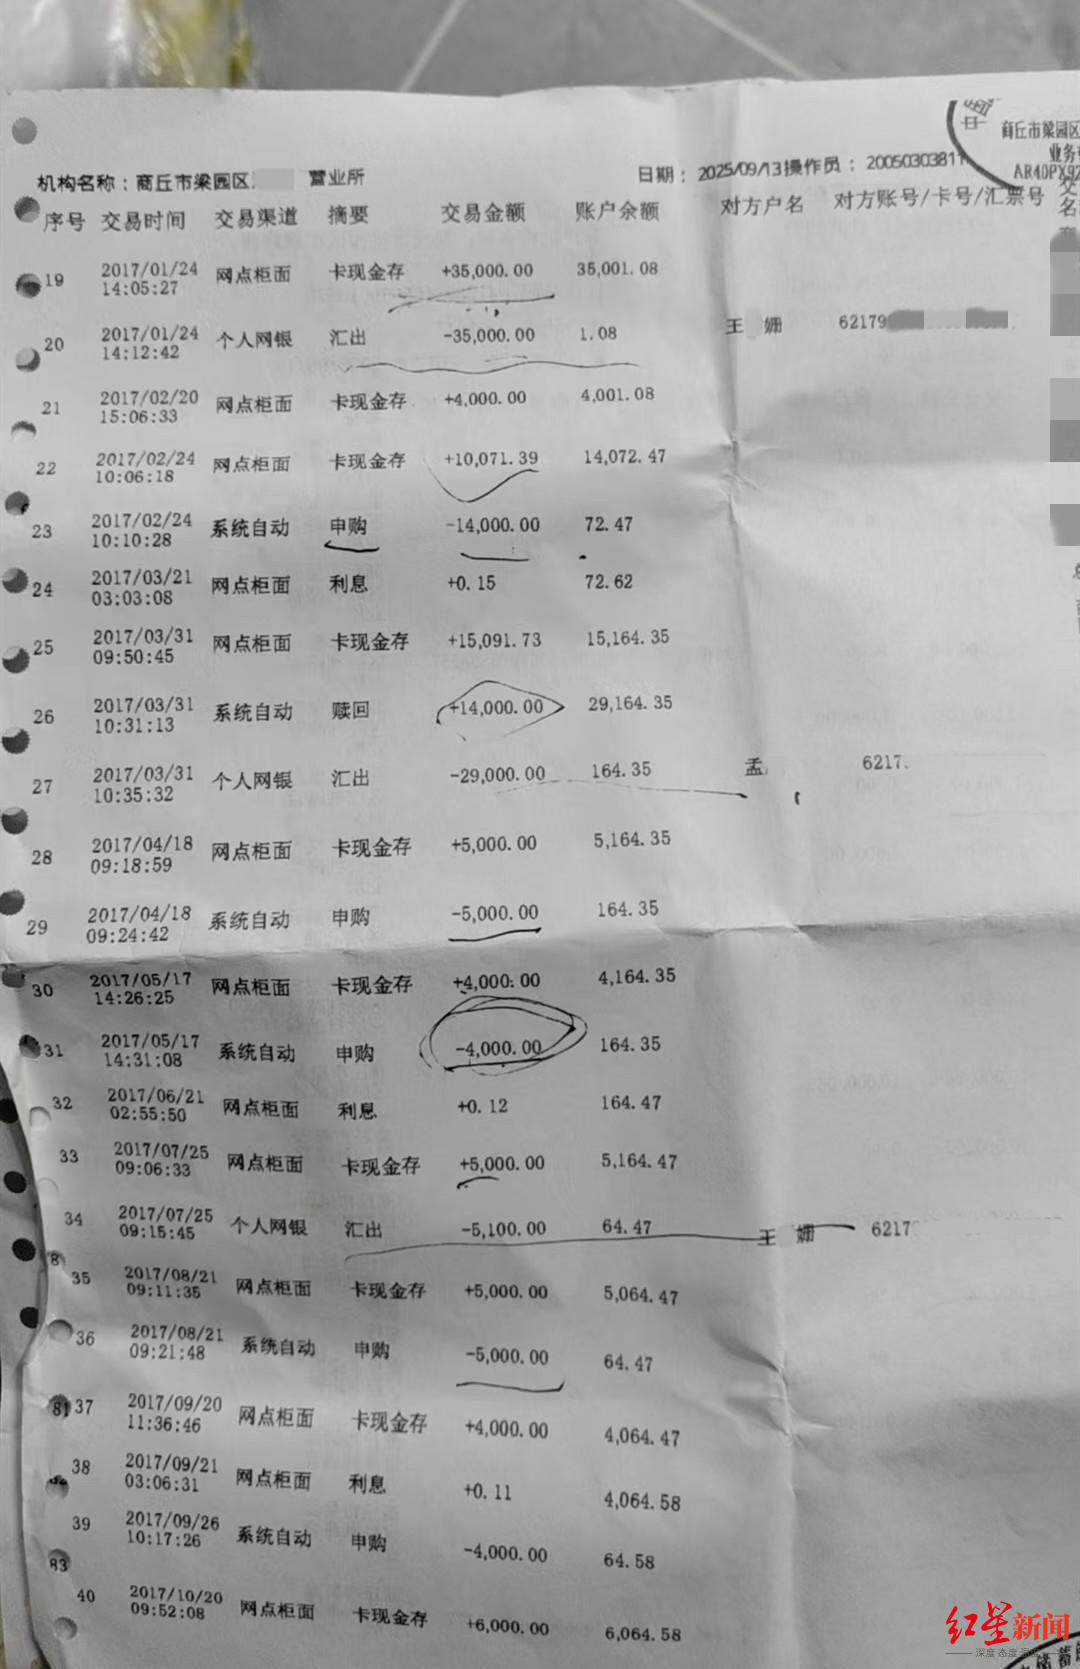 商丘市梁园区
业务
AR40PX92
机构名称：商丘市梁园区 营业所 日期：2025/09/13操作员：20050303811
序号 交易时间 交易渠道 摘要 交易金额 账户余额 对方户名 对方账号/卡号/汇票号 交
名
19 2017/01/24 14:05:27 网点柜面 卡现金存 +35,000.00 35,001.08
20 2017/01/24 14:12:42 个人网银 汇出 -35,000.00 1.08 王 姗 62179
21 2017/02/20 15:06:33 网点柜面 卡现金存 +4,000.00 4,001.08
22 2017/02/24 10:06:18 网点柜面 卡现金存 +10,071.39 14,072.47
23 2017/02/24 10:10:28 系统自动 申购 -14,000.00 72.47
24 2017/03/21 03:03:08 网点柜面 利息 +0.15 72.62
25 2017/03/31 09:50:45 网点柜面 卡现金存 +15,091.73 15,164.35
26 2017/03/31 10:31:13 系统自动 赎回 +14,000.00 29,164.35
27 2017/03/31 10:35:32 个人网银 汇出 -29,000.00 164.35 孟 6217
28 2017/04/18 09:18:59 网点柜面 卡现金存 +5,000.00 5,164.35
29 2017/04/18 09:24:42 系统自动 申购 -5,000.00 164.35
30 2017/05/17 14:26:25 网点柜面 卡现金存 +4,000.00 4,164.35
31 2017/05/17 14:31:08 系统自动 申购 -4,000.00 164.35
32 2017/06/21 02:55:50 网点柜面 利息 +0.12 164.47
33 2017/07/25 09:06:33 网点柜面 卡现金存 +5,000.00 5,164.47
34 2017/07/25 09:15:45 个人网银 汇出 -5,100.00 64.47 王 姗 6217
35 2017/08/21 09:11:35 网点柜面 卡现金存 +5,000.00 5,064.47
36 2017/08/21 09:21:48 系统自动 申购 -5,000.00 64.47
81 37 2017/09/20 11:36:46 网点柜面 卡现金存 +4,000.00 4,064.47
38 2017/09/21 03:06:31 网点柜面 利息 +0.11 4,064.58
39 2017/09/26 10:17:26 系统自动 申购 -4,000.00 64.58
83
40 2017/10/20 09:52:08 网点柜面 卡现金存 +6,000.00 6,064.58
红星新闻
深度 态度
储蓄